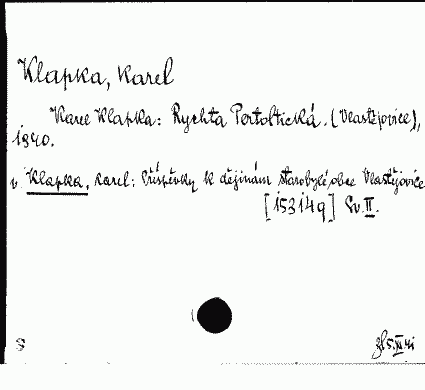 Klapka, Karel
Karel Klapka: Rychta Pertoltická. (Vlastějovice),
1940.
v Klapka, Karel: Příspěvky k dějinám starobylé obce Vlastějovice
[153149] Sv. II.
S